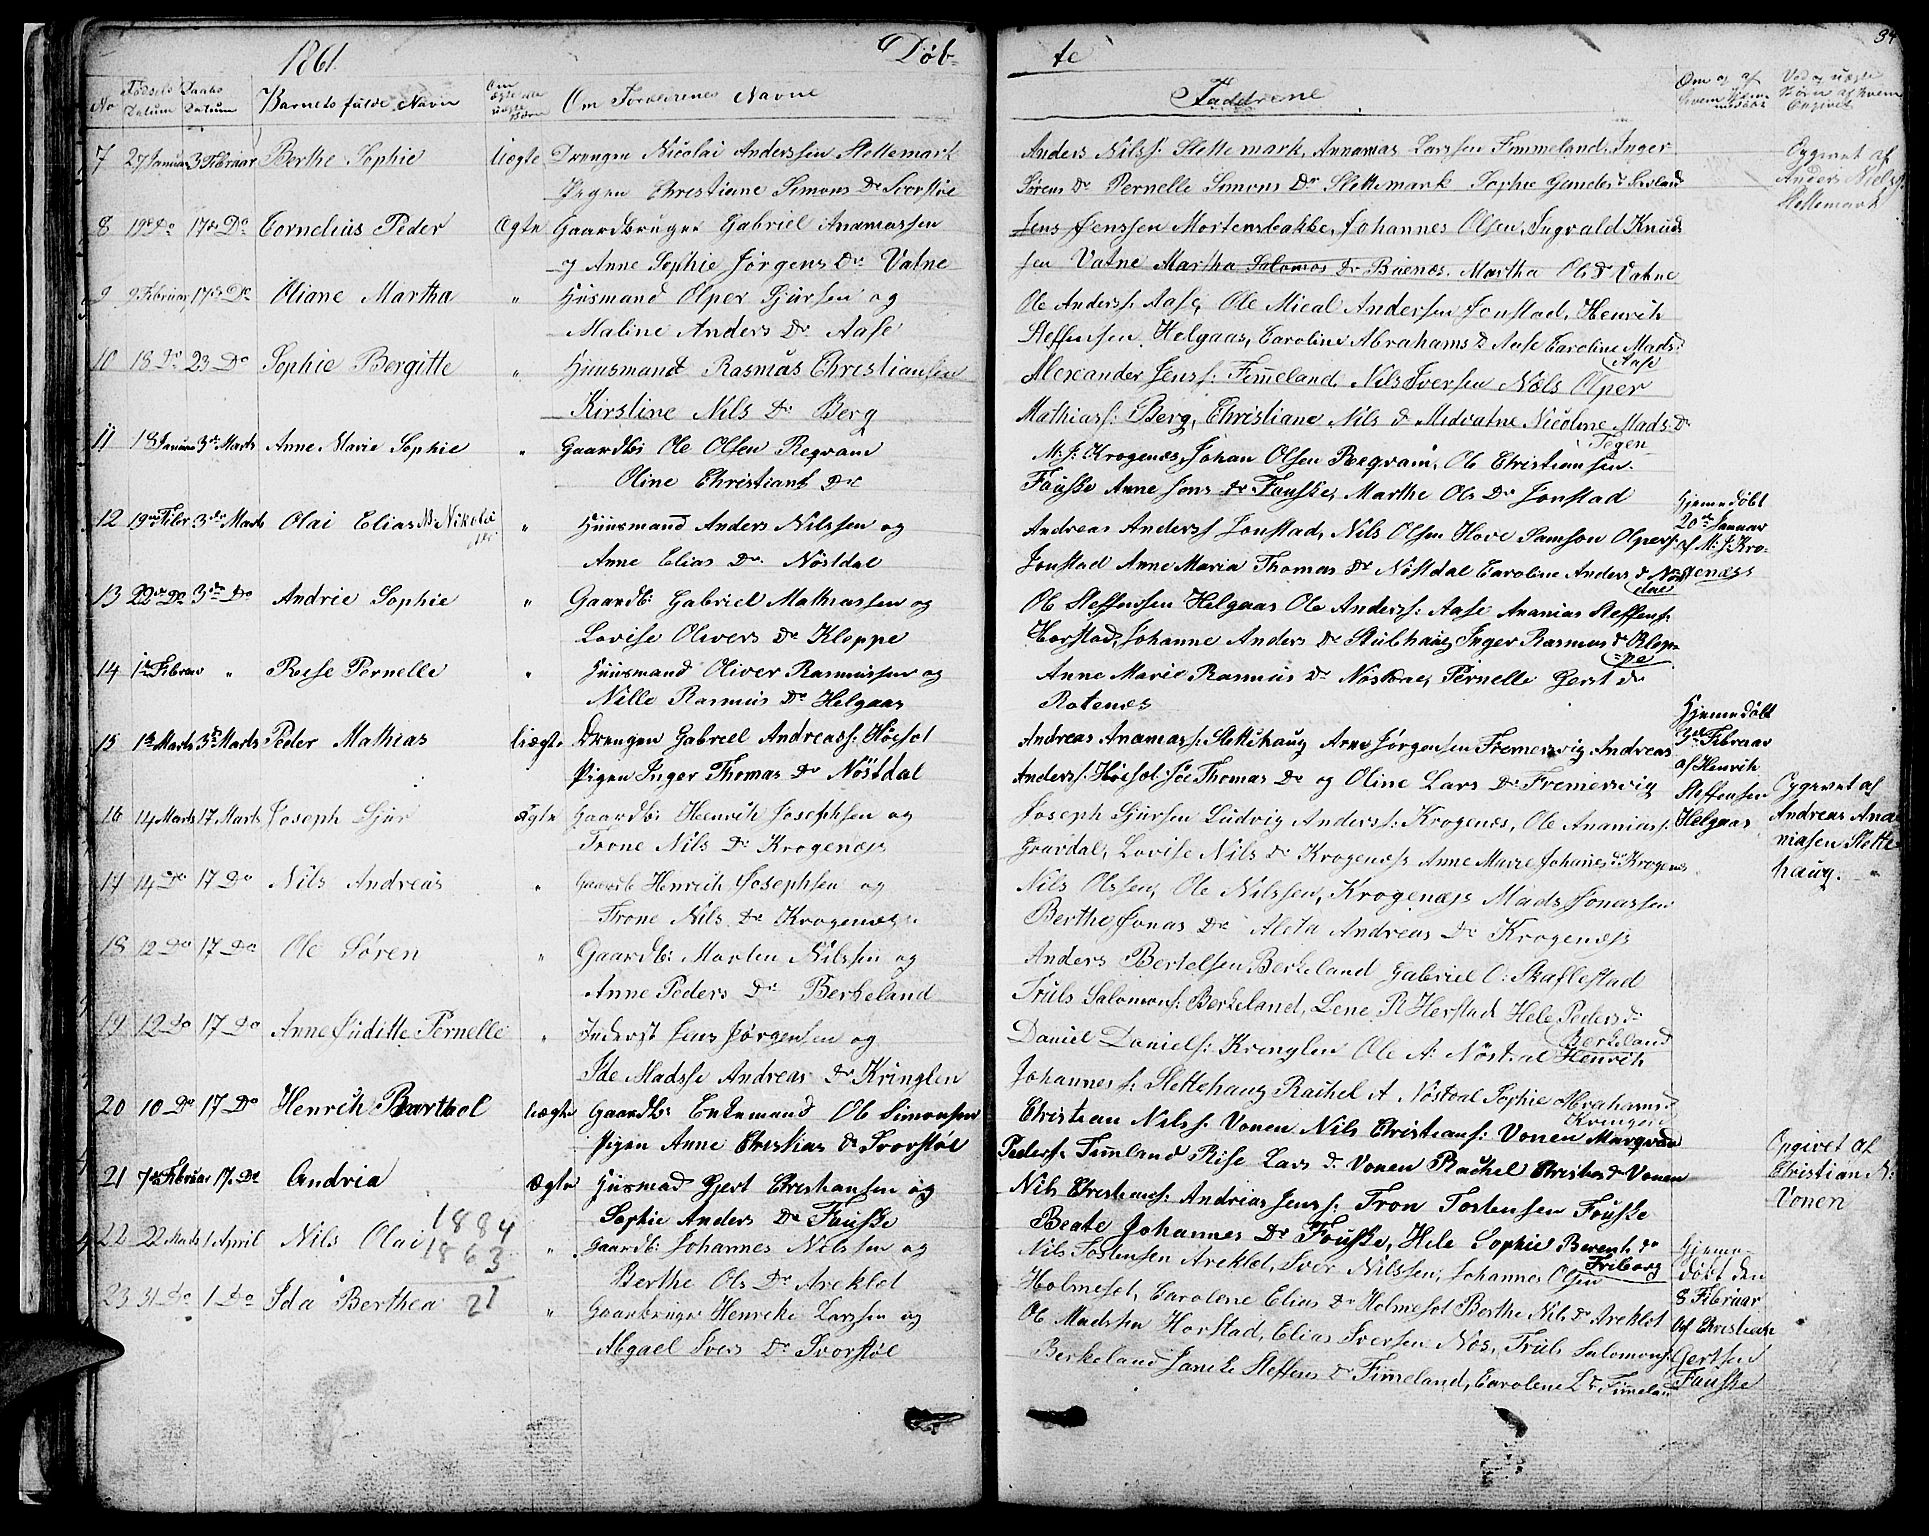 1861.
Døb-
te
34
No
Fødsels Datum
Daabs Datum
Barnets fulde Navn
Om ægte eller uægte Børn
Om Forældrenes Navne
Faddrene
7 27 Januar 3 Februar Berthe Sophie Uægte Drengen Nicolai Anderssen Slettemark
Pigen Christiane Simons Dr Svorstøl
Anders Nilss: Slettemark, Annanias Larssen Fimmeland, Inger
Sørens Dr Pernelle Simons Dr Slettemark Sophie
Opgivet af
Anders Niels:
Slettemark
8 19de Do 17de Do Cornelius Peder Ægte Gaardbruger Gabriel Ananiassen
og Anne Sophie Jørgens Dr Vatne
Jens Jenssen Mortensbakke, Johannes Olsen, Ingvald Knud-
sen Vatne Martha Salomos Dr Buenæs, Martha Ols Dr Vatne
9 9 Februar 17de Do Oliane Martha " Huusmand Olper Gjursen og
Maline Anders Dr Aase
Ole Anderss: Aase, Ole Mical Andersen Jonstad, Henrik
Steffensen Helgaas, Caroline Abrahams Dr Aase Caroline Mads Dr
Aase
10 18 Do 23 Do Sophie Bergitte " Huusmand Rasmus Christiansen
Kirstine Nils Dr Berg
Alexander Jenss: Fimeland, Nils Iversen Næs Olper
Mathiass: Berg, Christiane Nils Dr Midvatne Nicoline Mads: Dr
Tegen
11 18 Januar 3de Marts Anne Marie Sophie " Gaardbr Ole Olsen Reqvam
Oline Christians Dr
M: J: Krogenæs, Johan Olsen Reqvam, Ole Christiansen
Fauske Anne Jons Dr Fauske, Marthe Ols Dr Jonstad
Hjemmedøbt
20de Januar
af M: J: Kro-
genæs
12 19de Febr 3de Marts Olai Elias M: Nikolai " Huusmand Anders Nilssen og
Anne Elias Dr. Nöstdal
Andreas Anderss Jonstad, Nils Olsen Hove Samson Olpers:
Jonstad Anne Maria Thomas Dr Nöstdal Caroline Anders Dr Nöst-
dal
13 22de Do 3de Do Andrie Sophie " Gaardb: Gabriel Mathiassen og
Lovise Olivers Dr Kloppe
Ole Steffensen Helgaas Ole Anderss: Aase Ananias Steffens:
Horstad, Johanne Anders Dr Stubhaug Inger Rasmus Dr Klop-
=pe
14 1de Februar " Rese Pernelle " Huusmand Oliver Rasmussen og
Nille Rasmus Dr Helgaas
Anne Marie Rasmus Dr Nöstdal, Pernelle Gerst Dr
Rotenæs
15 1de Marts 3de Marts Peder Mathias Uægte Drengen Gabriel Andreass: Høesøl
Pigen Inger Thomas Dr Nöstdal
Andreas Ananiass: Slettehaug Arne Jørgensen Fremersvig Andreas
Anderss: Høisøl Thomas Dr og Oline Lars Dr Fremersvig
Hjemmedøbt
3de Februar
af Henrik
Steffensen
Helgaas
Opgivet af
Andreas Ana-
niasen Slette-
haug.
16 14 Marts 17 Marts Joseph Gjur Ægte Gaardb: Henrik Josephsen og
Trone Nils Dr Krogenæs
Joseph Gjursen Ludvig Anderss: Krogenæs, Ole Ananiass:
Gravdal, Lovise Nils Dr Krogenæs Anne Marie Johanes Dr Krogenæs
17 14 Do 17 Do Nils Andreas " Gaardb Henrich Josephsen og
Trone Nils Dr Krogenæs
Nils Olssen, Ole Nilssen, Krogenæs Mads Jonassen
Berthe Jonas Dr Aleta Andreas Dr Krogenæs
18 12 Do 17 Do Ole Søren " Gaardb: Morten Nilssen og
Anne Peders Dr Berkeland
Anders Bertelsen Berkeland Gabriel O: Skaflestad
Truls Salomons: Berkeland, Lene R Herstad Hele Peders Dr
Berkeland
19 12 Do 17 Do Anne Juditte Pernelle " Inderst Jens Jørgensen og
Ide Madsse Andreas Dr Kringlen
Daniel Daniels: Kringlen Ole A: Nöstdal Henrich
Johannes s. Slettehaug Rachel A Nöstdal Sophie Abrahams Dr
Kringlen
20 10 Do 17 Do Henrik Barthol Uægte Gaardb: Enkemand Ole Simonsen
Pigen Anne Christias Dr Svorstøl
Christian Nilss. Vonen Nils Christians: Vonen Marqvar
Peders: Fimland Rise Lars Dr Vonen Rachel Christias Dr Vonen
Opgivet af
Christian N:
Vonen
21 7de Februar 17. Do Andria Ægte Husmad Gjert Christiansen og
Sophie Anders Dr Fauske
Nils Christians: Andreas Jenss: Tron Tostensen Fauske
Beate Johannes Dr Fauske, Hele Sophie Berent Dr
Friborg
Hjemme-
døbt den
8 Februar
af Christian
Gertsen
Fauske
22 22 Marts 1 April Nils Olai " Gaardb: Johannes Nilssen og
Berthe Ols Dr Areklet
Nils Tostensen Areklet, Iver Nilssen, Johannes Olsen
Holmeset, Carolene Elias Dr Holmeset Berthe Nils Dr Areklet
1884
1863
21
23 31 Do 1 Do Ida Berthea " Gaarbruger Henreke Larssen og
Abgael Ivers Dr Svorstøl
Ole Madssen Horstad, Elias Iversen Nøs, Truls Salomons:
Berkeland Janeke Steffens Dr Fimmeland, Carolene L Dr Fimmeland